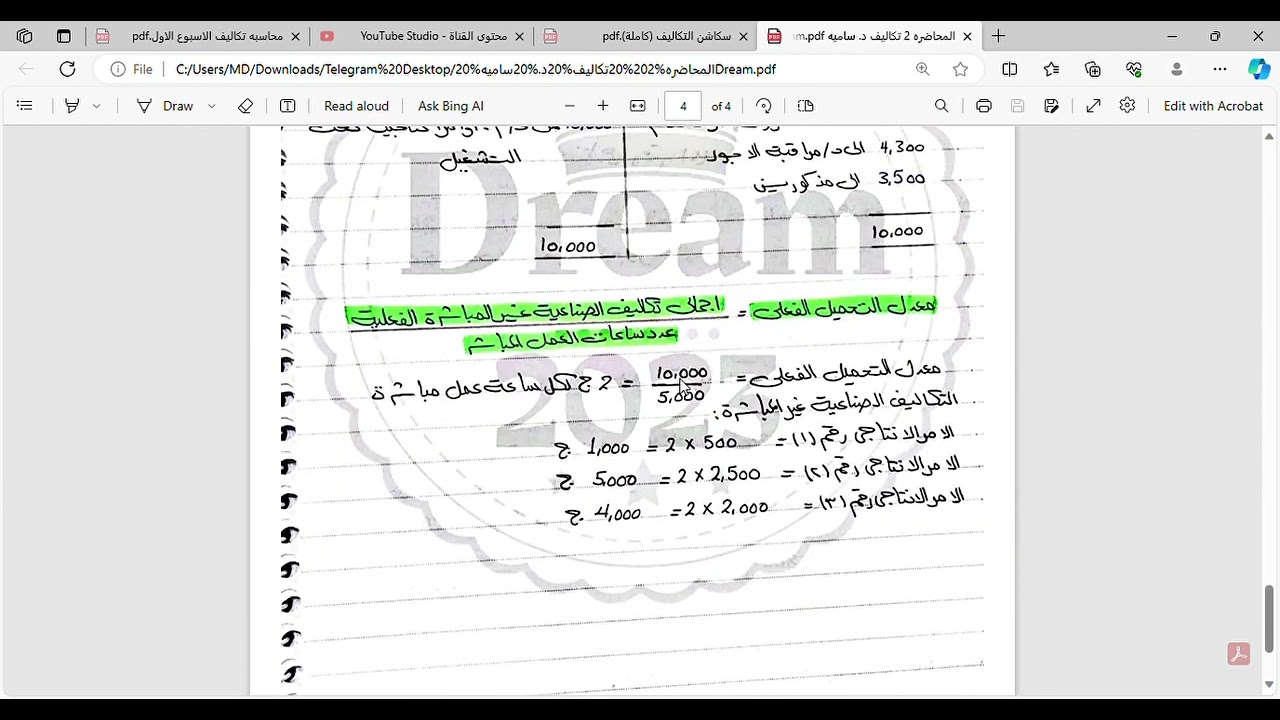 محاسبه تكاليف الاسبوع الاول.pdf
محتوى القناة - YouTube Studio
سكاشن التكاليف (كاملة).pdf
المحاضره 2 تكاليف د. ساميه am.pdf
File
C:/Users/MD/Downloads/Telegram%20Desktop/المحاضره%202%20تكاليف%20د.%20ساميه%20Dream.pdf
Draw
Read aloud
Ask Bing AI
4 of 4
Edit with Acrobat
4,300 الى ح/مراقبة الاجور
التشغيل
3,500 الى مذكورين
10,000
10,000
Dream
2023
معدل التحميل الفعلى = اجمالى تكاليف الصناعية غير المباشرة الفعلية
عدد ساعات العمل المباشر
معدل التحميل الفعلى = 10,000 / 5,000 = 2 ج لكل ساعة عمل مباشرة
التكاليف الصناعية غير المباشرة :
الامر الانتاجى رقم (١) = 500 × 2 = 1,000 ج
الامر الانتاجى رقم (٢) = 2,500 × 2 = 5,000 ج
الامر الانتاجى رقم (٣) = 2,000 × 2 = 4,000 ج